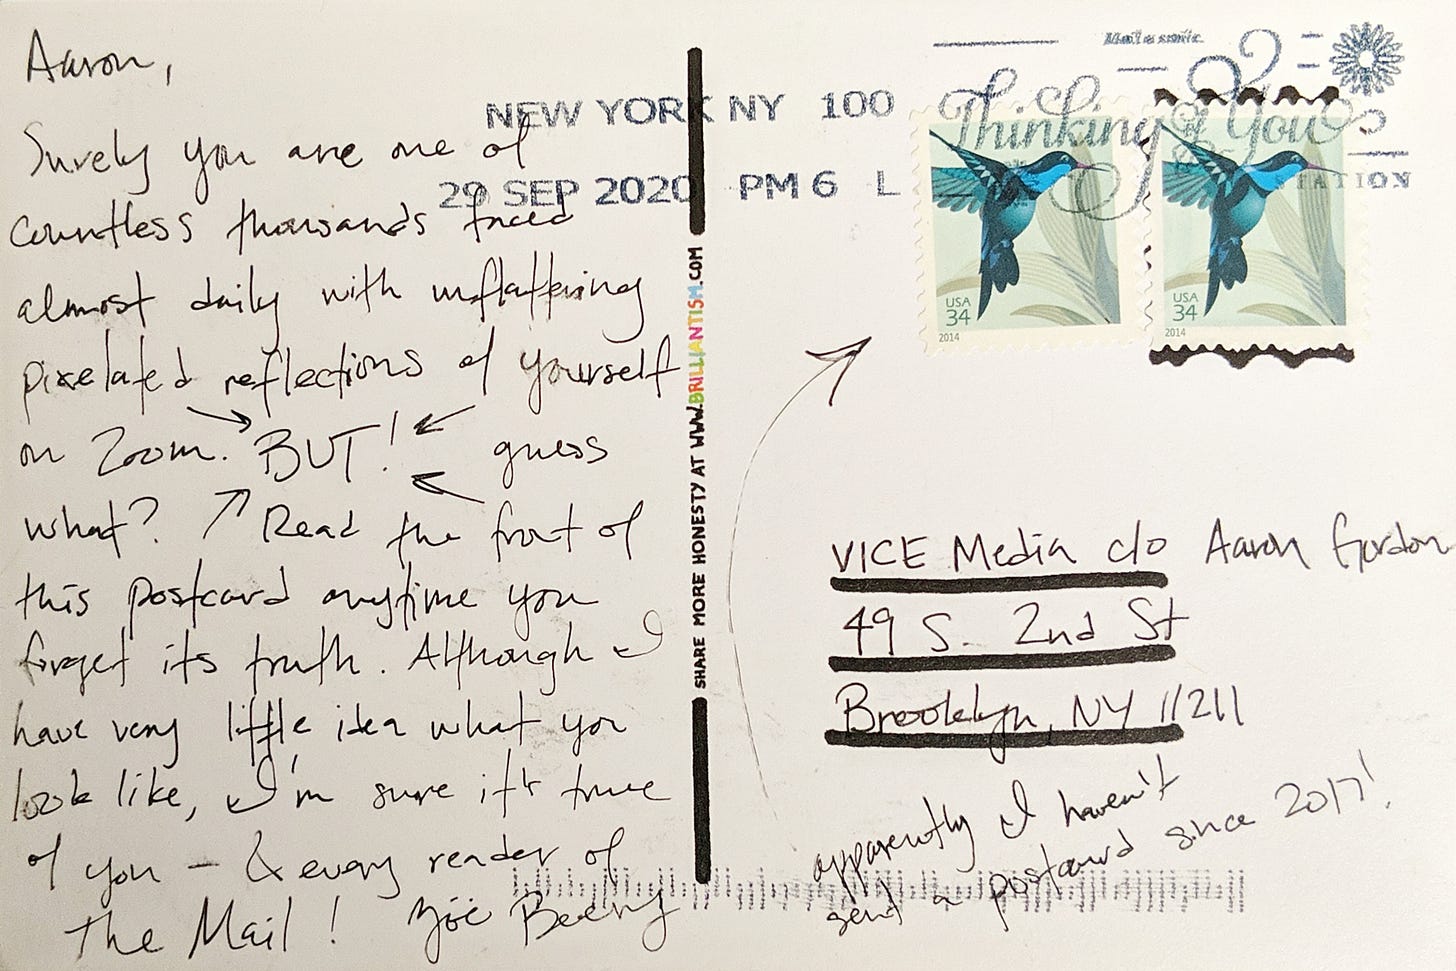 Aaron,
Surely you are one of
countless thousands faced
almost daily with unflattering
pixelated reflections of yourself
on Zoom. BUT! guess
what? Read the front of
this postcard anytime you
forget its truth. Although I
have very little idea what you
look like, I'm sure it's true
of you – & every reader of
The Mail! Zöe Beery
SHARE MORE HONESTY AT WWW.BRILLIANTISM.COM
NEW YORK NY 100
29 SEP 2020 PM 6 L
Thinking of You
STATION
USA
34
2014
USA
34
2014
VICE Media c/o Aaron Gordon
49 S. 2nd St
Brooklyn, NY 11211
apparently I haven't
send a postcard since 2017!